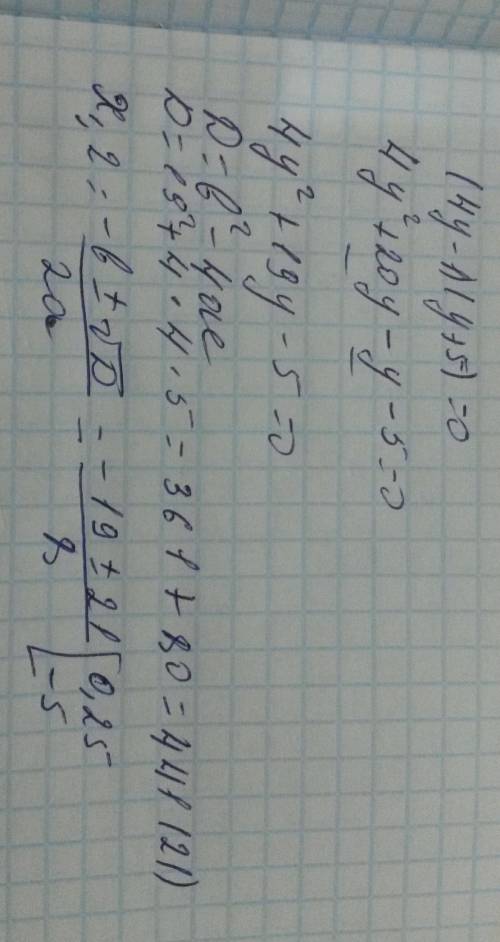 (4y-1)(y+5)=0
4y²+20y-y-5=0
4y²+19y-5=0
D=b²-4ac
D=19²+4·4·5=361+80=441(21)
x1,2=-b±√D/2a=-19±21/8[0,25
-5